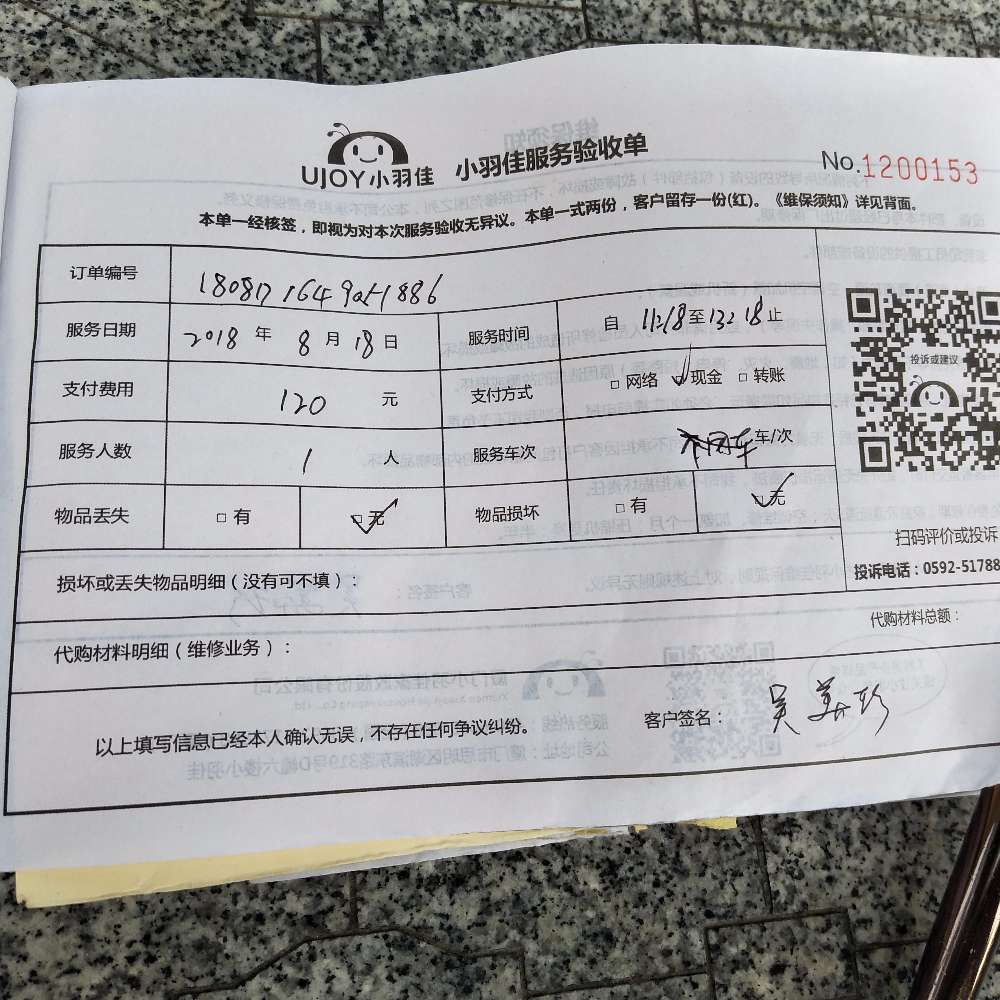 UJOY小羽佳 小羽佳服务验收单
No.1200153
本单一经核签，即视为对本次服务验收无异议。本单一式两份，客户留存一份(红)。《维保须知》详见背面。
订单编号
服务日期 2018 年 8 月 18 日 服务时间 自 11:18至13:18止
支付费用 120 元 支付方式 □ 网络 ✓现金 □ 转账
服务人数 1 人 服务车次 车/次
物品丢失 □ 有 □ 无 ✓ 物品损坏 □ 有 □ 无 ✓
投诉或建议
扫码评价或投诉
投诉电话：0592-51788
损坏或丢失物品明细（没有可不填）：
代购材料明细（维修业务）：
代购材料总额：
以上填写信息已经本人确认无误，不存在任何争议纠纷。
客户签名： 吴美珍